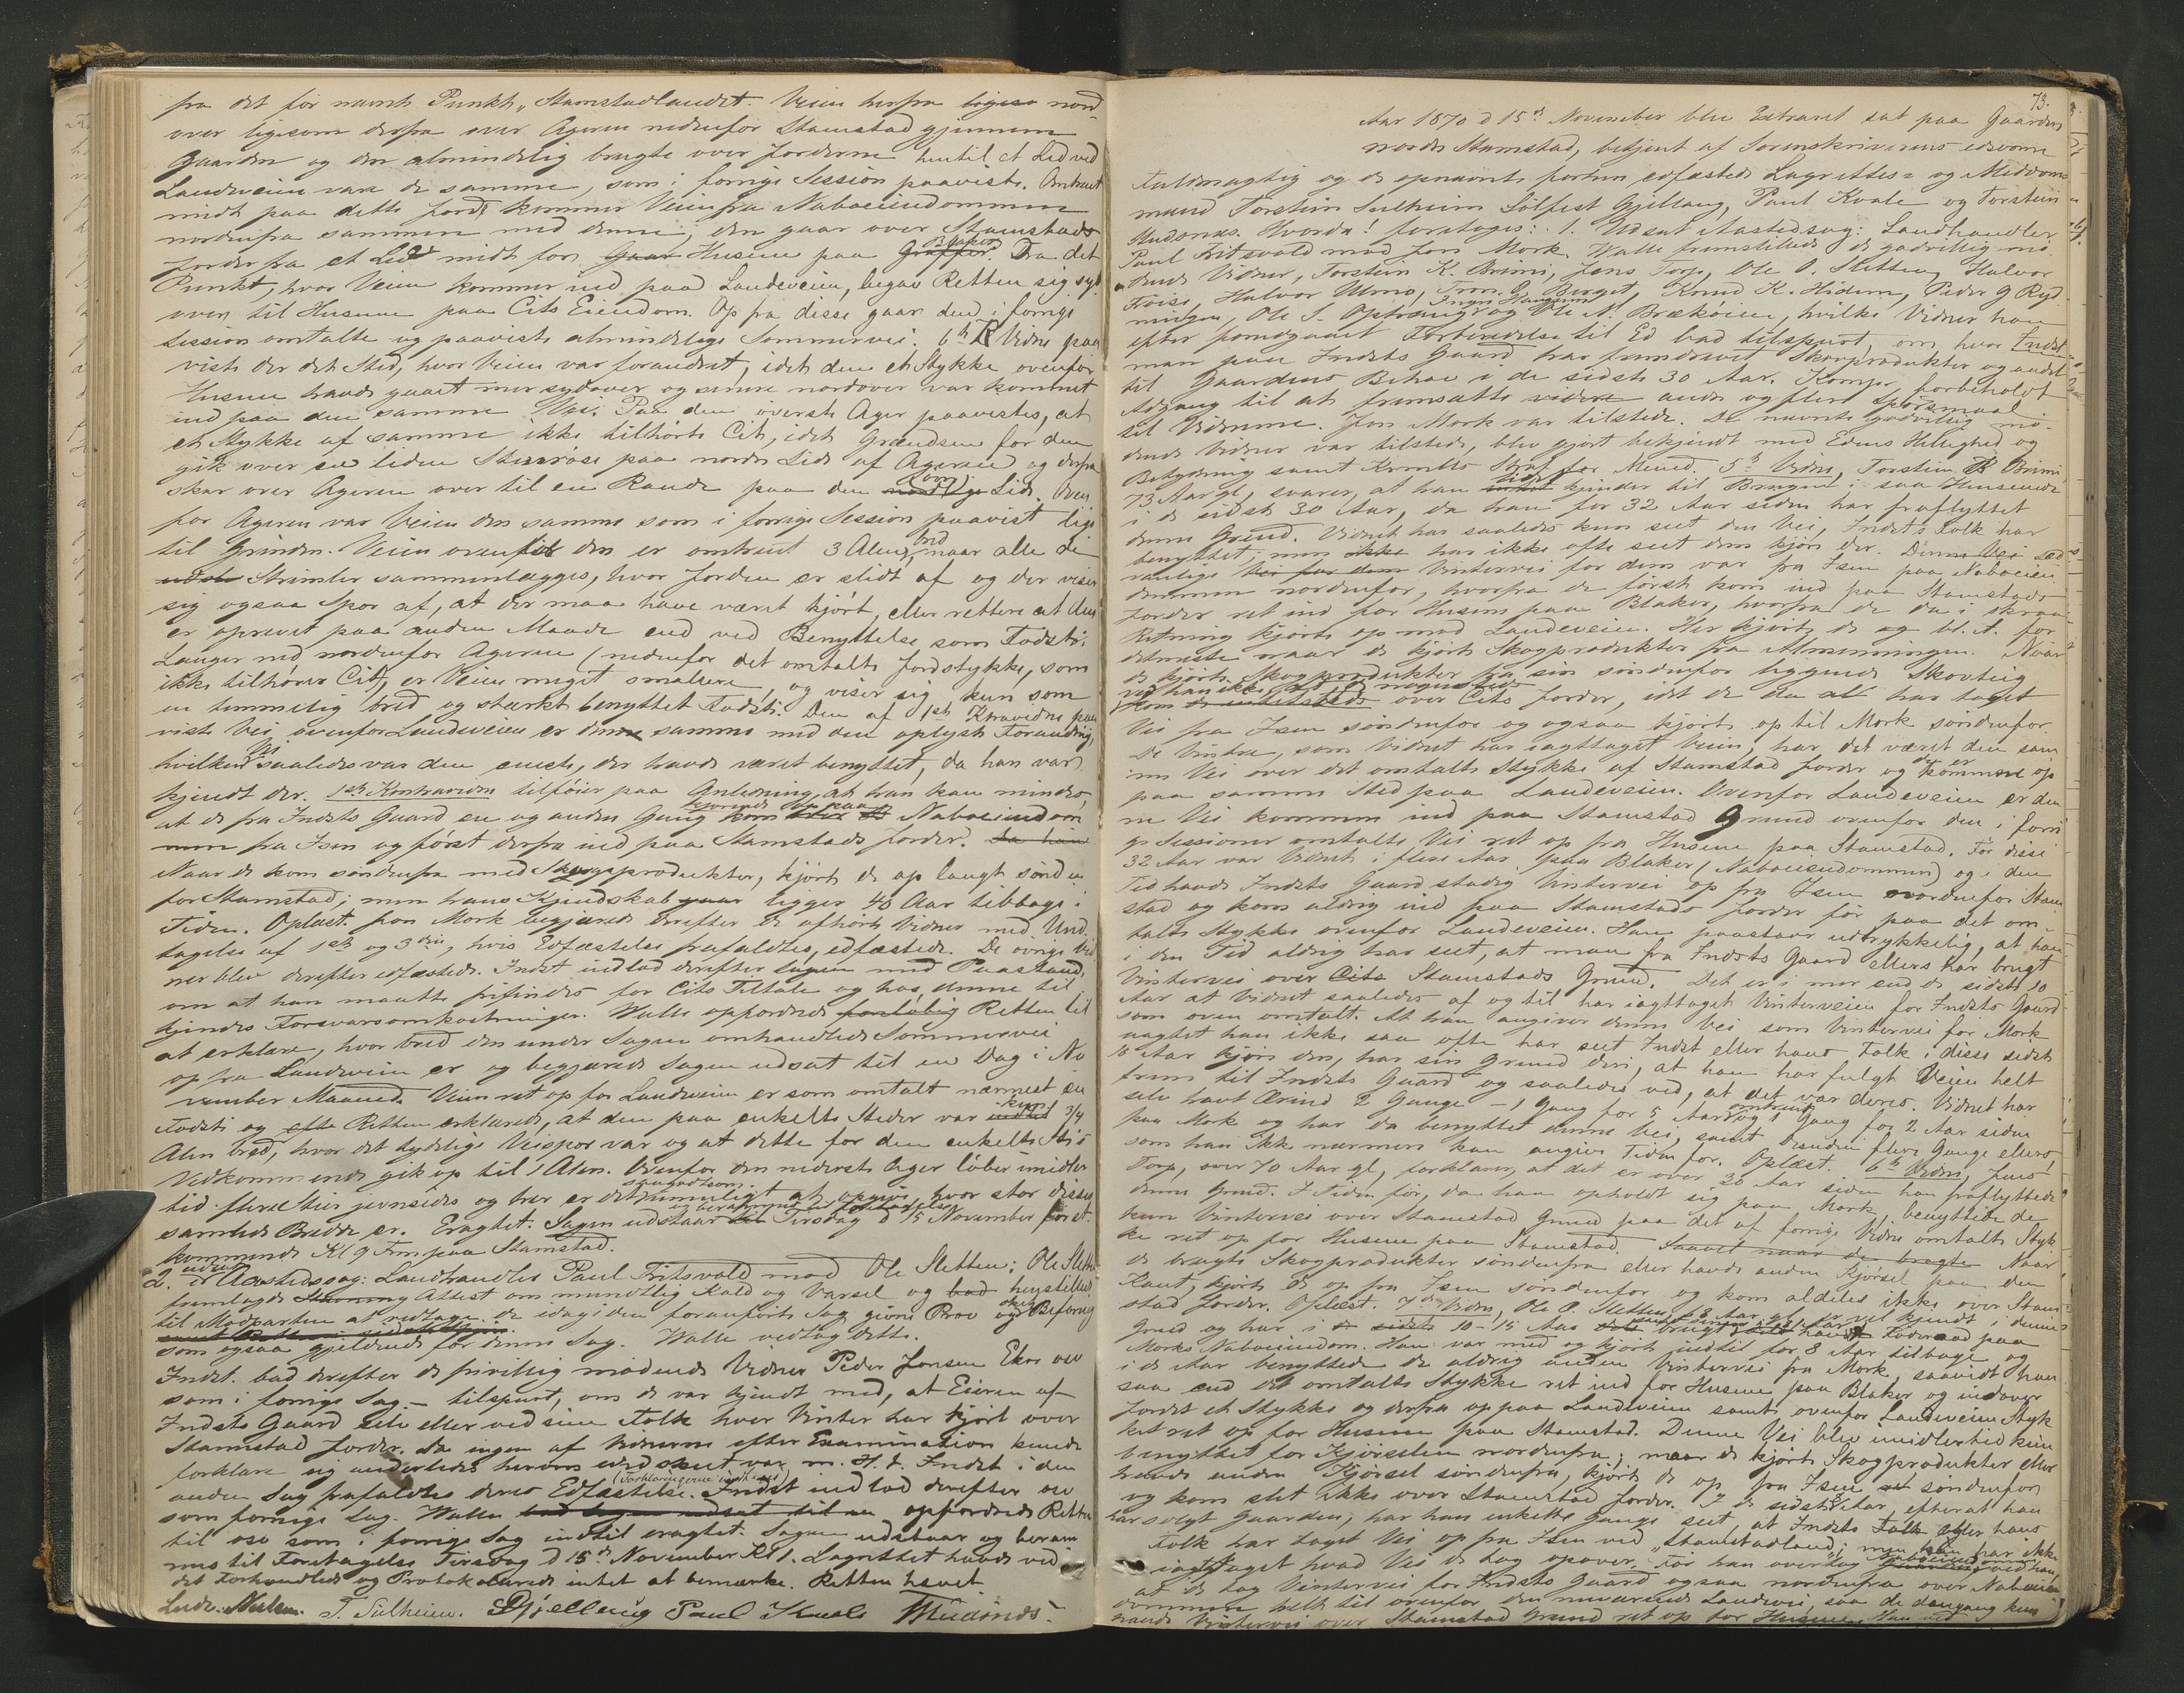 fra det før nævnte Punkt „Stamstadlandet. Veien herfra ligesaa nord-
over ligesom derfra over Ageren nedenfor Stamstad gjennem
Gaarden og den almindelig brugte over Jorderne hentil et Led ved
Landeveien vare de samme, som i forrige Session paaviste. Omtrent
midt paa dette Jorde kommer Veien fra Naboeiendommen
nordenfra sammen med denne, den gaar over Stamstads
Jorder fra et Led midt for Gaar Husene paa Blaker. Fra det
Punkt, hvor Veien kommer ind paa Landeveien, begav Retten sig syd
over til Husene paa Cits Eiendom. Op fra disse gaar den i forrige
Session omtalte og paaviste almindelige Sommervei. 6te Vidne paa
viste der det Sted, hvor Veien var forandret, idet den et Stykke ovenfor
Husene havde gaaet mer sydover og senere nordover var kommet
ind paa den samme Vei. Paa den øverste Ager paavistes, at
et Stykke af samme ikke tilhørte Cit, idet Grændsen for den
gik over en liden Stenrøse paa nordre Side af Ageren og derfra
skar over Ageren over til en Rande paa den nordlige Side. Oven
for Ageren var Veien den samme som i forrige Session paavist lige
til Grinden. Veien ovenfor den er omtrent 3 Alen bred, naar alle de
Strimler sammenlægges, hvor Jorden er slidt af og der viser
sig ogsaa Spor af, at der maa have været kjørt, eller rettere at den
er oprevet paa anden Maade end ved Benyttelse som Fodsti.
Længer ned nordenfor Ageren (nedenfor det omtalte Jordstykke, som
ikke tilhører Cit), er Veien meget smalere og viser sig kun som
en temmelig bred og stærkt benyttet Fodsti. Den af 1ste Ktravidne paa
viste Vei ovenfor Landeveien er den samme med den oplyste Forandring,
hvilken Vei saaledes var den eneste, der havde været benyttet, da han var
kjendt der. 1ste Kontravidne tilføier paa Anledning, at han kan mindes,
at de fra Indsts Gaard en og anden Gang kom kjørende op paa Naboeiendom
men fra Isen og først derfra ind paa Stamstads Jorder. da han
Naar de kom søndenfra med Skogsprodukter, kjørte de op langt sønden
for Stamstad; men hans Kjendskab ligger 40 Aar tilbage i
Tiden. Oplæst. Jon Mork begjærede derefter de afhørte Vidner med Und-
tagelse af 1ste og 3die, hvis Edfæstelse frafaldtes, edfæstede. De øvrige Vid
ner blev derefter edfæstede. Indst. indlod derefter Sagen med Paastand
om at han maatte frifindes for Cits Tiltale og hos denne til
kjendes Forsvarsomkostninger. Walle opfordrede foreløbig Retten til
at erklære, hvor bred den under Sagen omhandlede Sommervei
op fra Landeveien er og begjærede Sagen udsat til en Dag i No
vember Maaned. Veien ret op for Landeveien er som omtalt nærmest en
Fodsti og Retten erklærede, at den paa enkelte Steder var kun 3/4
Alen bred, hvor det tydelige Veispor var og at dette for den enkelte Sti's
Vedkommende gik op til 1 Alen. Ovenfor den nederste Ager løber imidler
tid flere Stier jevnsides og her er det umuligt at opgive, hvor stor disses
samlede Bredde er. Eragtet: Sagen udstaar og berammes til Foretagelse Tirsdag d 15 November først-
kommende Kl 9 Fm paa Stamstad.
2. Udsat Aastedssag: Landhandler Paul Fritsvold mod Ole Sletten: Ole Sletten
fremlagde Attest om mundtlig Kald og Varsel og henstillede
til Modparten at vedtage de idag i den foranførte Sag givne Prov og skede Befaring
som ogsaa gjeldende for denne Sag. Walle vedtog dette.
Indst. bad derefter de frivillig mødende Vidner Peder Jonsen Ekre osv
som i forrige Sag – tilspurt, om de var kjendt med, at Eieren af
Indsts Gaard selv eller ved sine Folk hver Vinter har kjørt over
Stamstad Jorder. Da ingen af Vidnerne efter Examination kunde
forklare sig anderledes herom end skeet var m. H. t. Indst i den
anden Sag frafaldtes deres Edfæstelse. (Forklaringerne oplæstes) Indst indlod derefter osv
som forrige Sag. Walle bad Sagen udsat til en opfordrede Retten
til osv som i forrige Sag indtil eragtet: Sagen udstaar og beram
mes til Foretagelse Tirsdag d 15de November Kl 1. Lagrettet havde ved
det Forhandlede og Protokollerede intet at bemærke. Retten hævet.
Ludv. Nielsen. T. Sulheim. SGjelleug Paul Kvale TAndsnes.
73.
Aar 1870 d 15de November blev Extraret sat paa Gaarden
nordre Stamstad, betjent af Sorenskriverens edsvorne
Fuldmægtig og de opnævnte forhen edfæstede Lagrettes- og Meddoms
mænd Torstein Sulheim Sølfest Gjellaug, Paul Kvale og Torstein
Andsnes. Hvorda! foretoges: 1. Udsat Aastedssag: Landhandler
Paul Fritsvold mod Jon Mork. Walle fremstillede de godvillig mø
dende Vidner, Torstein K. Brimi, Jens Torp, Ole O. Sletten, Halvor
Foss, Halvor Ulmo, Tron G. Berget, Knud K. Hidem, Peder G Ryd
ningen, Ole S. Opstrang, Inger Haugeun og Ole N. Brækøien, hvilke Vidner han
efter foregaaet Forberedelse til Ed bad tilspurt, om hvor Indst
man paa Indsts Gaard har fremdrevet Skovprodukter og andet
til Gaardens Behov i de sidste 30 Aar. Komp. forbeholdt
Adgang til at fremsætte andre og flere Spørsmaal
til Vidnerne. Jon Mork var tilstede. De nævnte godvillig mø-
dende Vidner var tilstede, blev gjort bekjendt med Edens Hellighed og
Betydning samt Kremters Straf for Meened. 5te Vidne, Torstein K Brimi,
73 Aar gl, svarer, at han lidet kjender til Brugen i saa Henseende
i de sidste 30 Aar, da han for 32 Aar siden har fraflyttet
denne Grend. Vidnet har saaledes kun seet den Vei, Indsts Folk har
benyttet; men ikke har ikke ofte seet dem kjøre der. Denne Vei sæd
vanlige Vintervei for dem var fra Isen paa Naboeien
dommen nordenfor, hvorfra de først kom ind paa Stamstads
Jorder ret ind for Husene paa Blaker, hvorfra de da i skraa
Retning kjørte op mod Landeveien. Her kjørte de og bl. a. for
detmeste naar de kjørte Skogprodukter fra Almenningen. Naar
de kjørte Skogprodukter fra sin søndenfor liggende Skovteig
ved han ikke, at de nogensinde kom over Cits Jorder, idet de da har taget
Vei fra Isen søndenfor og ogsaa kjørt op til Mork søndenfor.
De Vintre, som Vidnet har iagttaget Veien, har det været den sam
me Vei over det omtalte Stykke af Stamstad Jorder og de er kommen op
paa samme Sted paa Landeveien. Ovenfor Landeveien er den
ne Vei kommen ind paa Stamstad Grund ovenfor den i forri
ge Sessioner omtalte Vei ret op fra Husene paa Stamstad. For disse
32 Aar var Vidnet i flere Aar paa Blaker (Naboeiendommen) og i den
Tid havde Indsts Gaard stadig Vintervei op fra Isen nordenfor Stam
stad og kom aldrig ind paa Stamstads Jorder før paa det om-
talte Stykke ovenfor Landeveien. Han paastaar udtrykkelig, at han
i den Tid aldrig har seet, at man fra Indsts Gaard ellers har brugt
Vintervei over Cits Stamstads Grund. Det er i mer end de sidste 10
Aar at Vidnet saaledes af og til har iagttaget Vinterveien for Indsts Gaard
som oven omtalt. At han angiver denne Vei som Vintervei for Mork
uagtet han ikke saa ofte har seet Indst eller hans Folk i disse sidste
10 Aar kjøre den, har sin Grund deri, at han har fulgt Veien helt
frem til Indsts Gaard og saaledes ved, at det var deres. Vidnet har
selv havt Ærind 2 Gange – 1 Gang for 5 Aar og omtrent 1 Gang for 2 Aar siden
paa Mork og har da benyttet denne Vei, samt desuden flere Gange ellers,
som han ikke nærmere kan angive Tiden for. Oplæst. 6te Vidne, Jens
Torp, over 70 Aar gl, forklarer, at det er over 30 Aar siden han fraflyttede
denne Grend. I Tiden før, da han opholdt sig paa Mork, benyttede de
kun Vintervei over Stamstad Grund paa det af forrige Vidne omtalte Styk
ke ret op for Husene paa Stamstad. Saavel naar de bragte Naar
de bragte Skogprodukter søndenfra eller havde anden Kjørsel paa den
Kant, kjørte de op fra Isen søndenfor og kom aldeles ikke over Stam-
stad Jorder. Oplæst. 7de Vidne, Ole O. Sletten, 68 Aar gl, er vel kjendt i denne
Grend og har i de sidste 10-15 Aar havt Føderaad paa
Morks Naboeiendom. Han var med og kjørte indtil for 8 Aar tilbage og
i de Aar benyttede de aldrig anden Vintervei fra Mork, saavidt han
saa end det omtalte Stykke ret ind for Husene paa Blaker og indover
Jordet et Stykke og derfra op paa Landeveien samt ovenfor Landeveien Styk
ket ret op for Husene paa Stamstad. Denne Vei blev imidlertid kun
benyttet for Kjørselen nordenfra; naar de kjørte Skogprodukter eller
havde anden Kjørsel søndenfra, kjørte de op fra Isen søndenfor
og kom slet ikke over Stamstad Jorder. I de sidste 8 Aar, efterat han
har solgt Gaarden, har han enkelte Gange seet, at Indsts Folk eller hans
Folk har taget Vei op fra Isen ved „Stamstadland"; men han har ikke
iagttaget hvad Vei de tog opover. Før han overtog Naboeiendommen ved han,
at de tog Vintervei for Indsts Gaard ogsaa nordenfra over Naboeien
dommen helt til ovenfor den nuværende Landevei, saa de dengang kun
havde Vintervei over Stamstad Grund ret op for Husene. Han ved